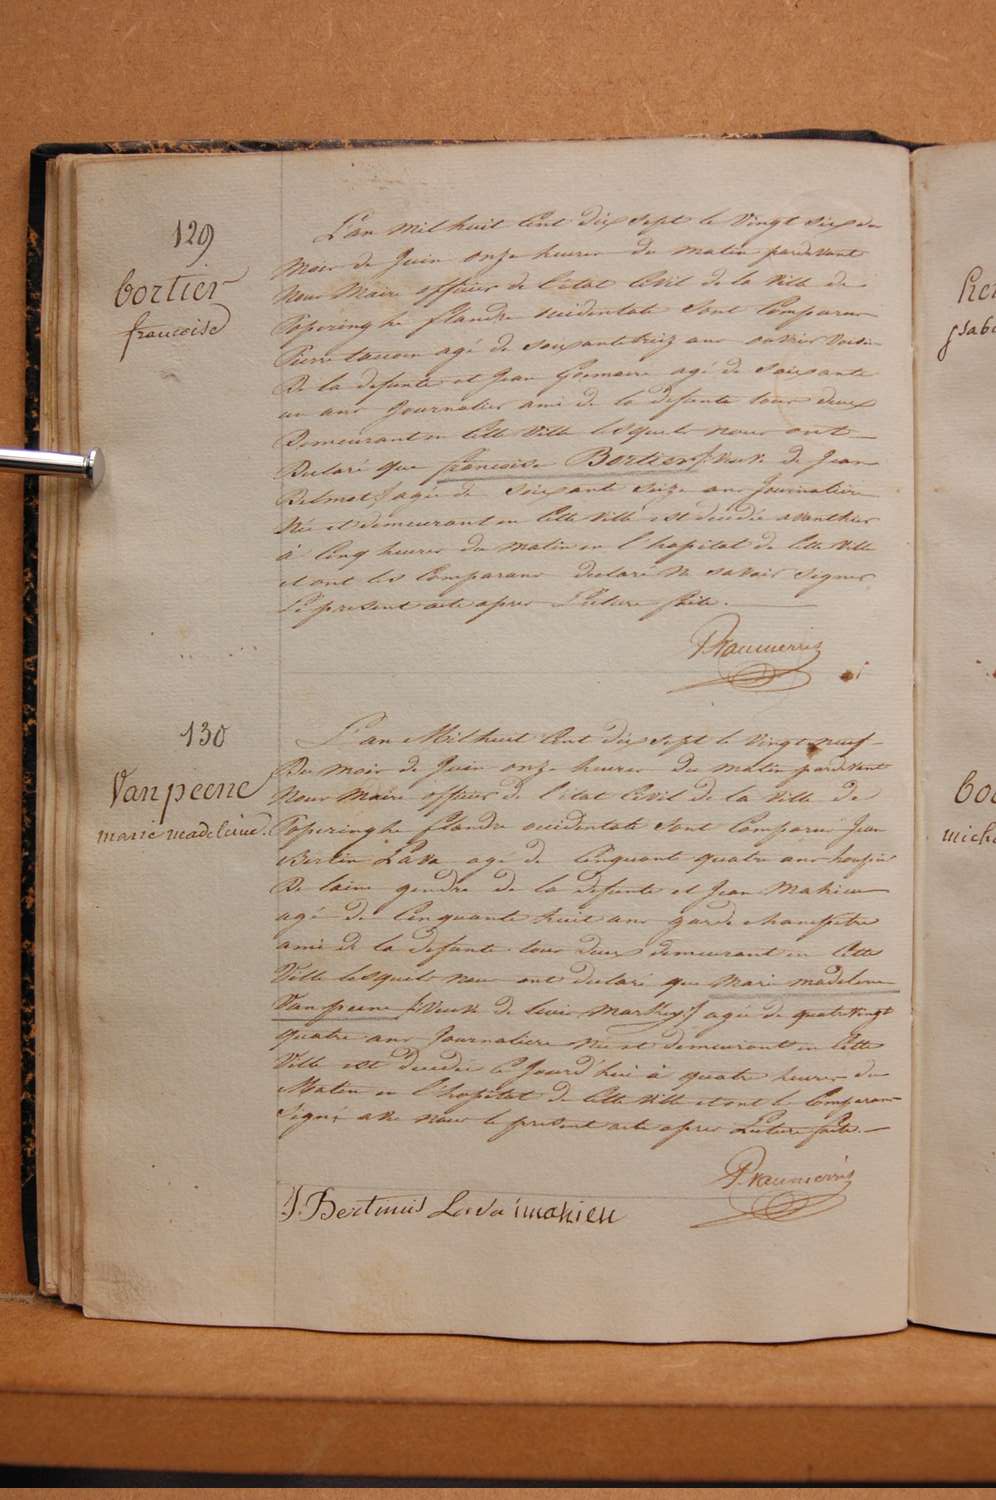 129
bortier
francoise
L'an Mil huit Cent dix sept le Vingt six du
Mois de Juin onze heures du matin pardevant
Nous Maire officier de l'etat Civil de la Ville de
Poperinghe flandre occidentale Sont Comparus
Pierre agé de soixante treize ans
De la defunte et Jean Goemaere agé de Soixante
un ans Journalier ami de la defunte tous deux
Demeurant en Cette Ville lesquels nous ont
Declaré que francoise Bortier Veuve de Jean
agée de soixante Seize ans Journaliere
Née et demeurant en Cette Ville est decedée avanthier
à Cinq heures du matin en l'hopital de Cette Ville
et ont les Comparans declaré ne savoir Signer
Le present acte apres Lecture faite.
130
Vanpeene
marie madeleine.
L'an Mil huit Cent dix sept le Vingt neuf
Du Mois de Juin onze heures du matin pardevant
Nous Maire officier de l'etat Civil de la Ville de
Poperinghe flandre occidentale Sont Comparus Jean
Bertin Lava agé de Cinquante quatre ans
De laine gendre de la defunte et Jean Mahieu
agé de Cinquante huit ans garde champetre
ami de la defunte tous deux demeurant en Cette
Ville lesquels nous ont declaré que Marie madelene
Vanpeene Veuve de Louis agée de quatre vingt
quatre ans Journaliere née et demeurant en Cette
Ville est decedée Ce Jourd'hui à quatre heures du
Matin en l'hopital de Cette Ville et ont les Comparans
Signé avec nous le present acte apres Lecture faite.
J. Bertinus Lava mahieu